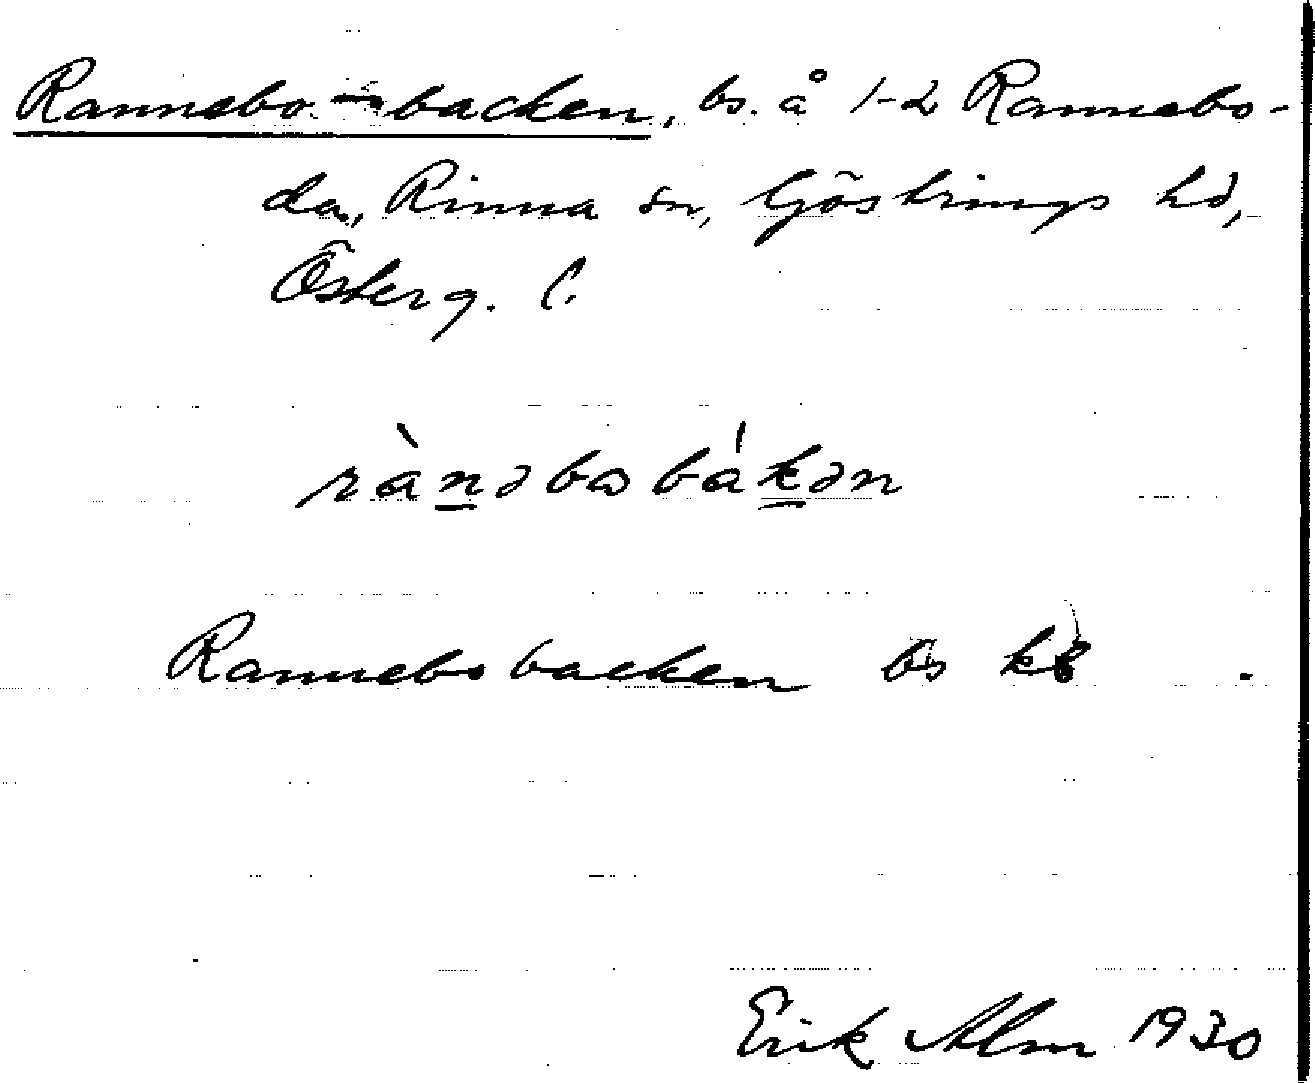 Rannebo-backen, bs. å 1-2 Rannebo-
da, Rinna sn, Göstrings hd,
Österg. l.
rànəbasbákən
Rannebobacken bs kb
Erik Alm 1930